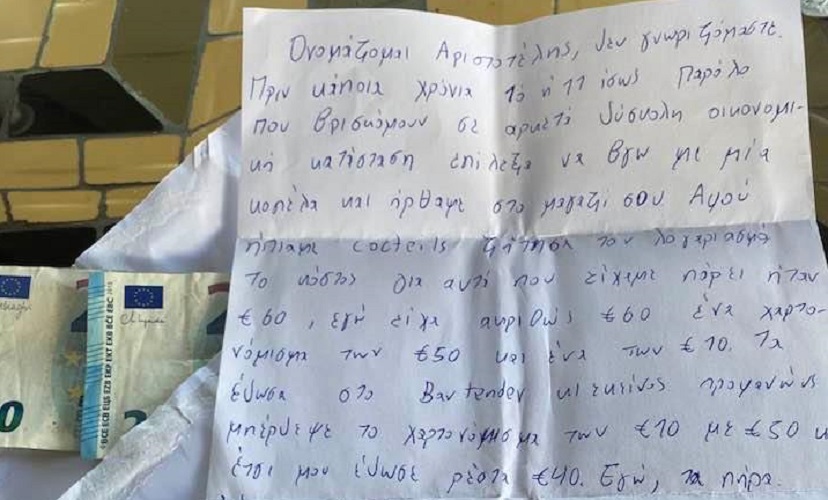 Ονομάζομαι Αριστοτέλης, δεν γνωριζόμαστε.
Πριν κάποια χρόνια 10 ή 11 ίσως Παρόλο
που βρισκόμουν σε αρκετά δύσκολη οικονομι-
κή κατάσταση επέλεξα να βγω με μία
κοπέλα και ήρθαμε στο μαγαζί σου Αφού
ήπιαμε cocteils ζήτησα τον λογαριασμό
Το κόστος για αυτά που είχαμε πάρει ήταν
€60, εγώ είχα ακριβώς €60 ένα χαρτο-
νόμισμα των €50 και ένα των €10. Τα
έδωσα στο Bartender κι εκείνος προφανώς
μπέρδεψε το χαρτονόμισμα των €10 με €50 κ
έτσι μου έδωσε ρέστα €40. Εγώ, τα πήρα.
BCE ECB ΕΚΤ